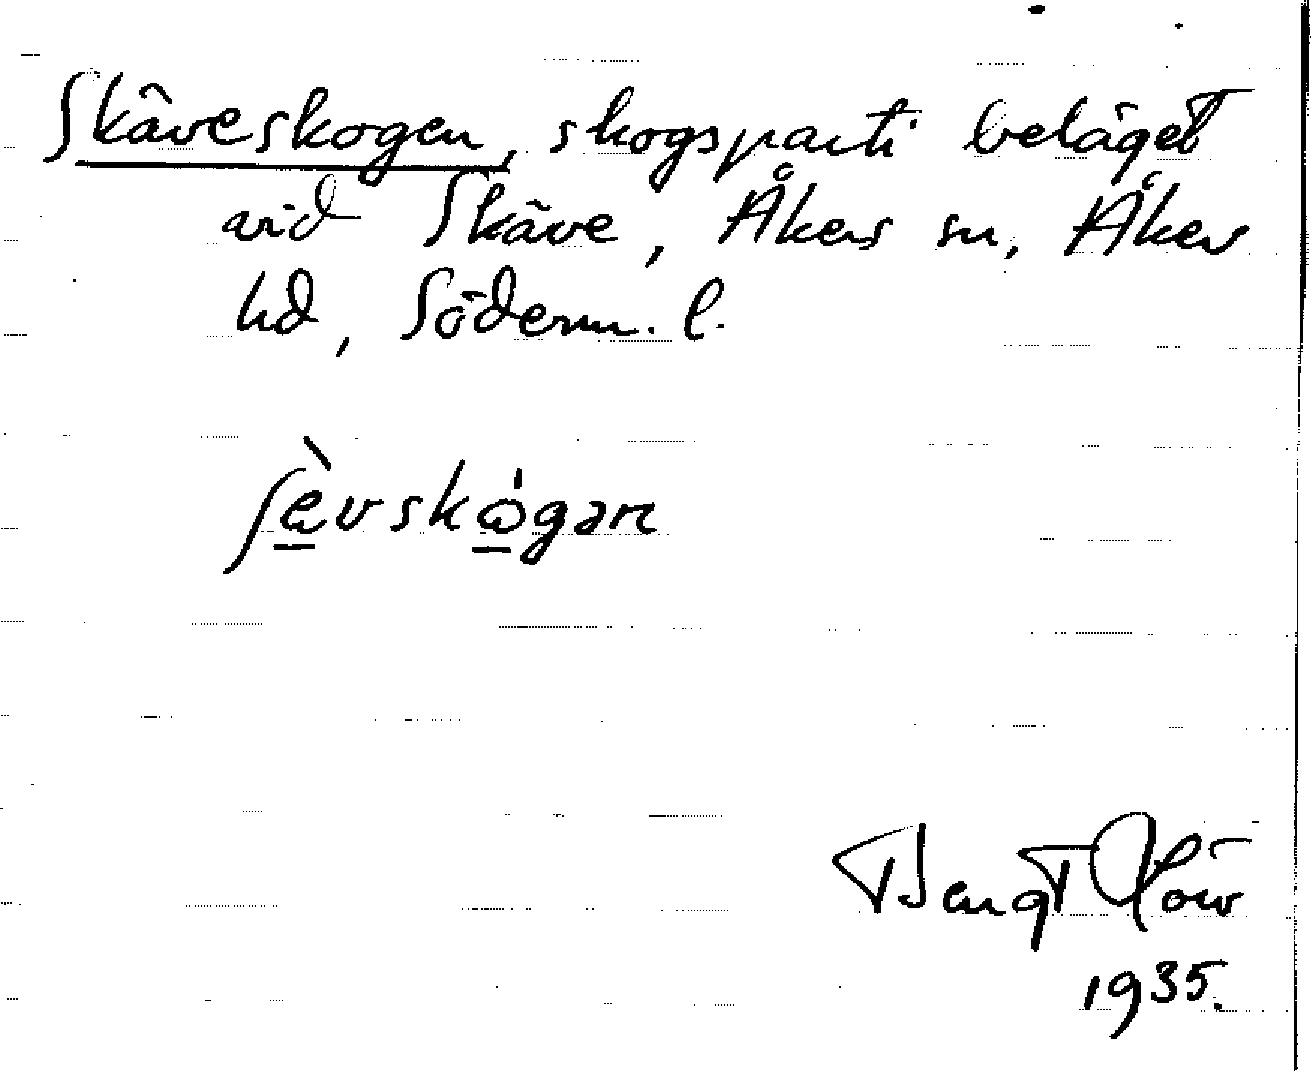 Skäveskogen, skogsparti beläget
vid Skäve, Åkers sn, Åkers
hd, Söderm. l.
ʃè̱vskò̱gən
Bengt
1935.